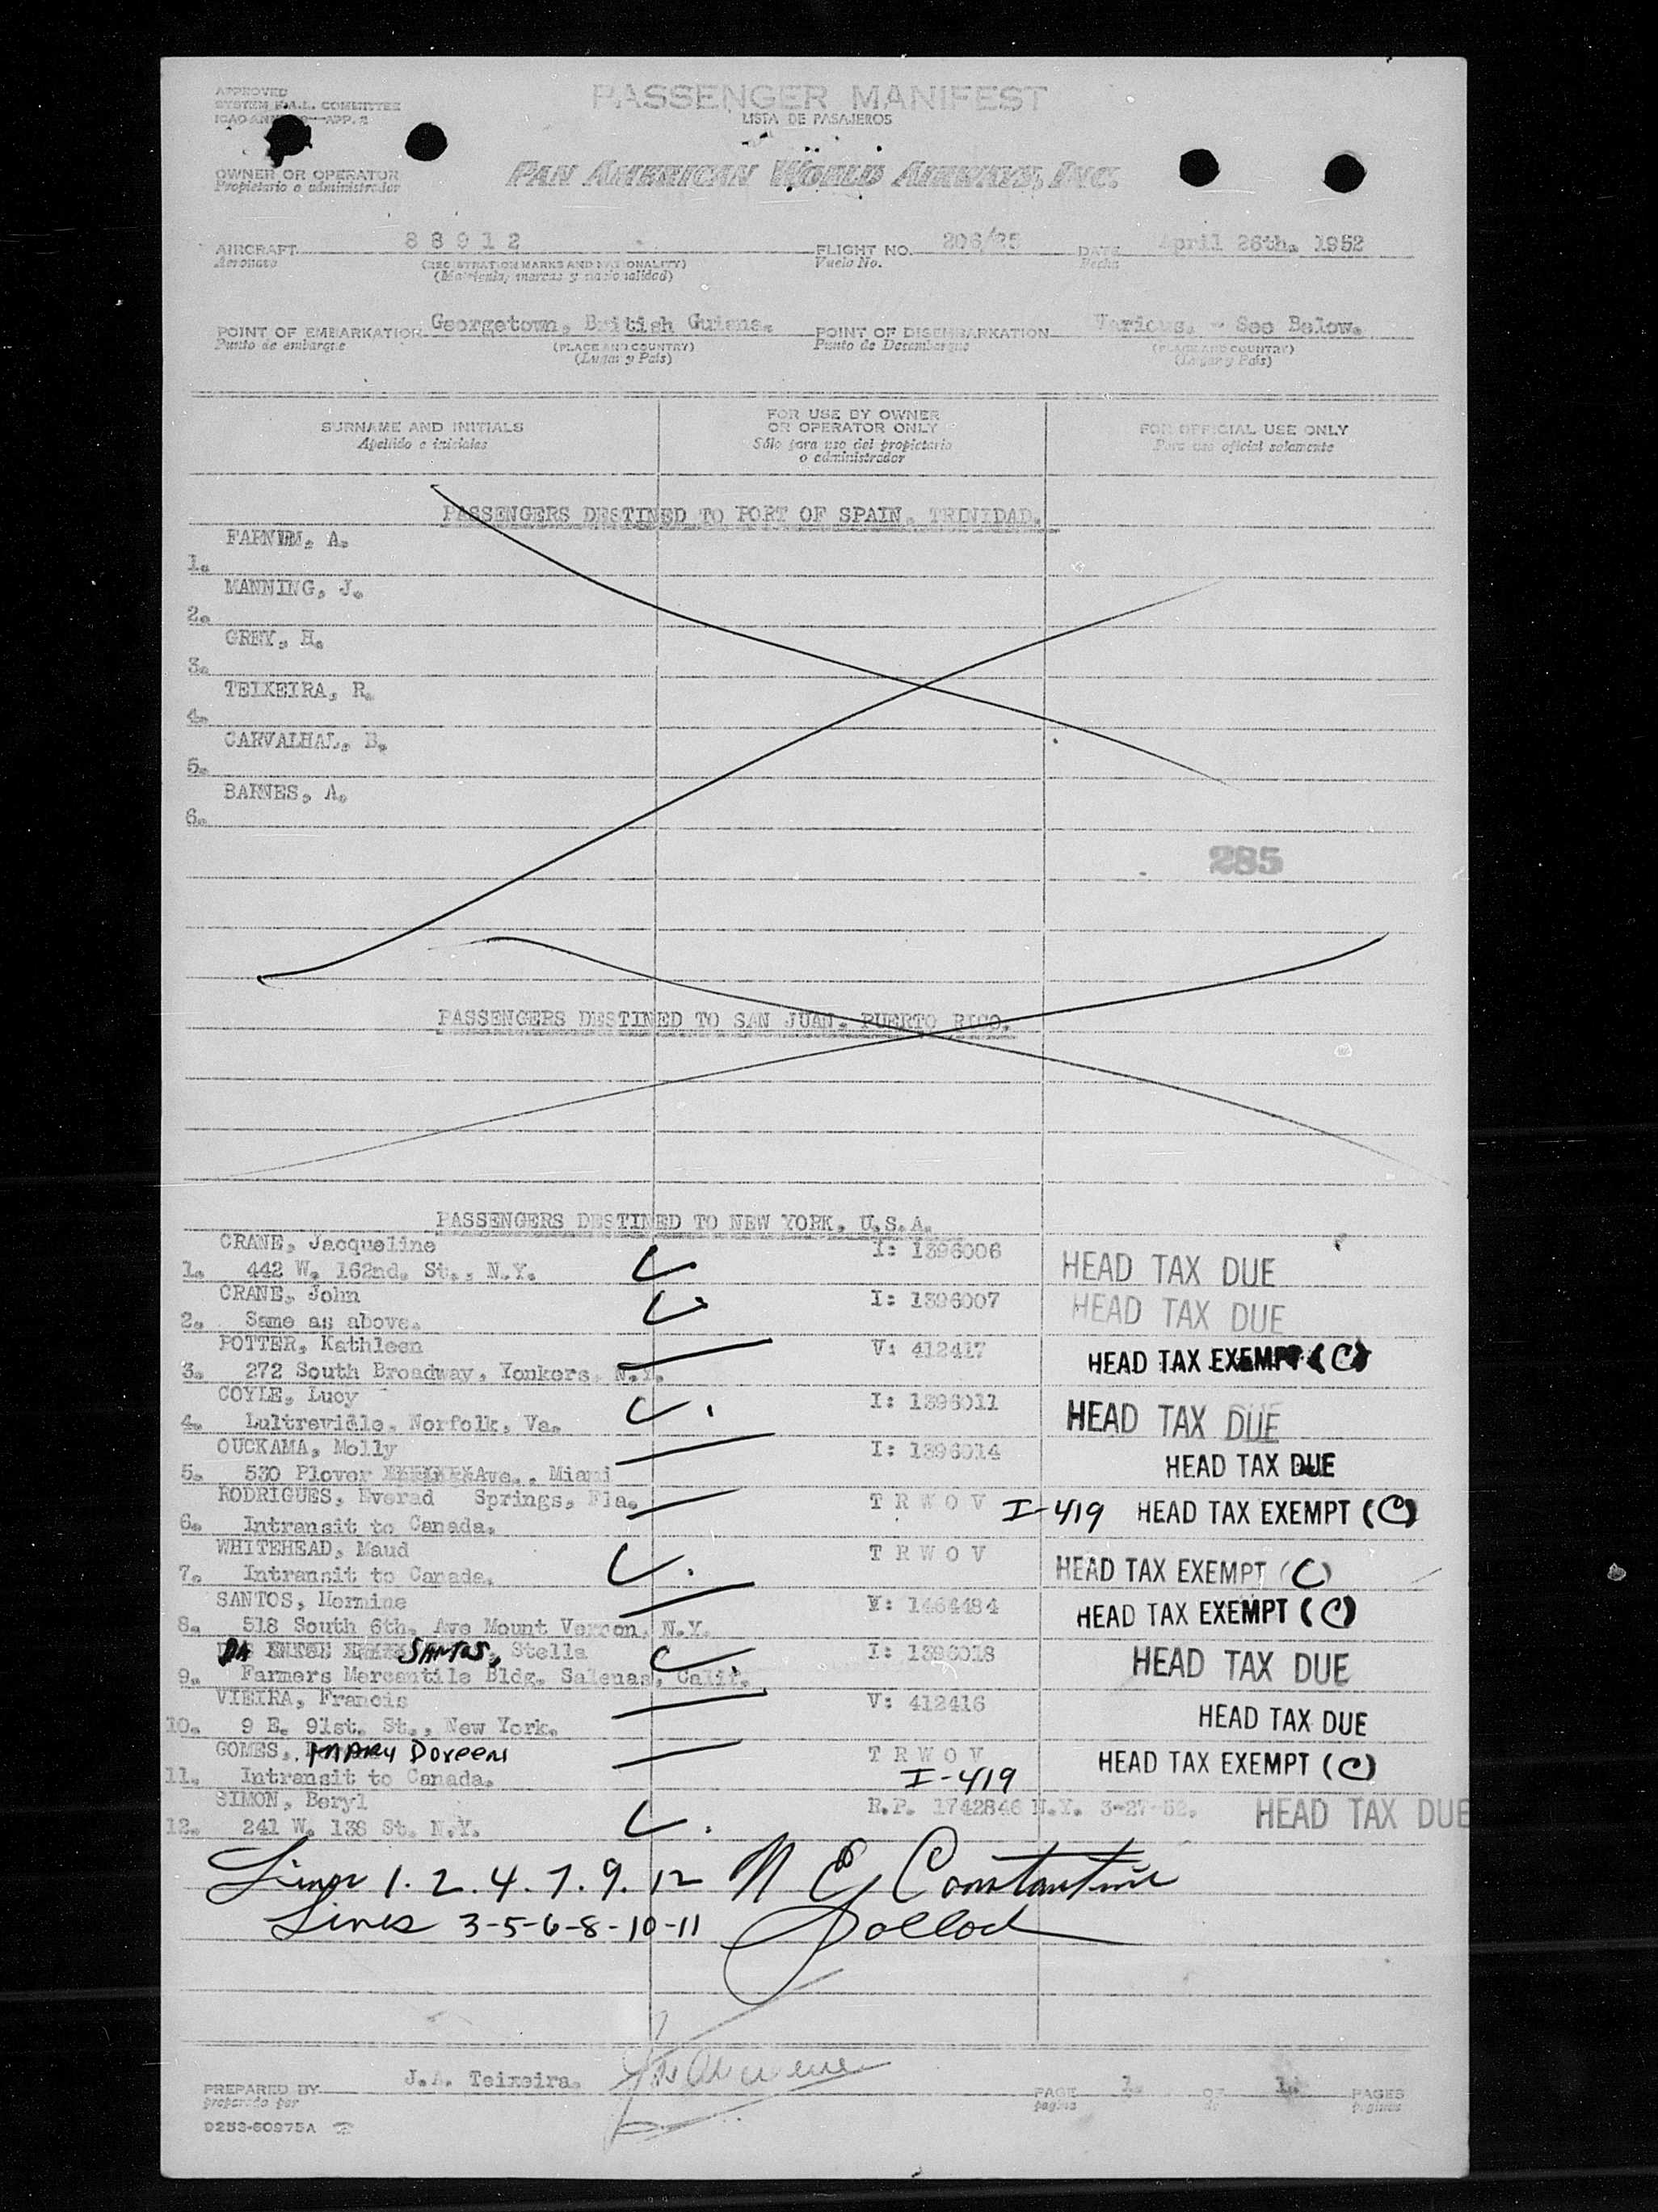 APPROVED
SYSTEM F.A.L. COMMITTEE
ICAO ANNEX 9 APP. 2
PASSENGER MANIFEST
LISTA DE PASAJEROS
OWNER OR OPERATOR
Propietario o administrador
PAN AMERICAN WORLD AIRWAYS, INC.
AIRCRAFT 88912 FLIGHT NO. 206/25 DATE April 26th. 1952
Aeronave (REGISTRATION MARKS AND NATIONALITY) Vuelo No. Fecha
(Matricula, marcas y nacionalidad)
POINT OF EMBARKATION Georgetown, British Guiana. POINT OF DISEMBARKATION Various. - See Below.
Punto de embarque (PLACE AND COUNTRY) Punto de Desembarque (PLACE AND COUNTRY)
(Lugar y País) (Lugar y País)
SURNAME AND INITIALS FOR USE BY OWNER OR OPERATOR ONLY FOR OFFICIAL USE ONLY
Apellido e iniciales Sólo para uso del propietario o administrador Para uso oficial solamente
PASSENGERS DESTINED TO PORT OF SPAIN. TRINIDAD.
FARNUM, A.
1.
MANNING, J.
2.
GREY, H.
3.
TEIXEIRA, R.
4.
CARVALHAL, B.
5.
BARNES, A.
6.
285
PASSENGERS DESTINED TO SAN JUAN. PUERTO RICO.
PASSENGERS DESTINED TO NEW YORK. U.S.A.
CRANE, Jacqueline I: 1396006
1. 442 W. 162nd. St., N.Y. HEAD TAX DUE
CRANE, John I: 1396007
2. Same as above. HEAD TAX DUE
POTTER, Kathleen V: 412417
3. 272 South Broadway, Yonkers, N.Y. HEAD TAX EXEMPT (C)
COYLE, Lucy I: 1396011
4. Norfolk, Va. HEAD TAX DUE
OUCKAMA, Molly I: 1396014
5. 530 Plover Ave., Miami HEAD TAX DUE
RODRIGUES, Everad Springs, Fla. T R W O V I-419 HEAD TAX EXEMPT (C)
6. Intransit to Canada.
WHITEHEAD, Maud T R W O V
7. Intransit to Canada. HEAD TAX EXEMPT (C)
SANTOS, Hermine V: 1464484
8. 518 South 6th. Ave Mount Vernon, N.Y. HEAD TAX EXEMPT (C)
DA SANTOS, Stella I: 1396018
9. Farmers Mercantile Bldg. Salenas, Calif. HEAD TAX DUE
VIEIRA, Francis V: 412416
10. 9 E. 91st. St., New York. HEAD TAX DUE
GOMES, MARY Doreen T R W O V HEAD TAX EXEMPT (C)
11. Intransit to Canada. I-419
SIMON, Beryl R.P. 1742846 N.Y. 3-27-52. HEAD TAX DUE
12. 241 W. 138 St. N.Y.
Lines 1.2.4.7.9.12 N E Constantine
Lines 3-5-6-8-10-11
PREPARED BY J.A. Teixeira. PAGE 1. OF 1. PAGES
preparado por pagina de paginas
D253-60975A